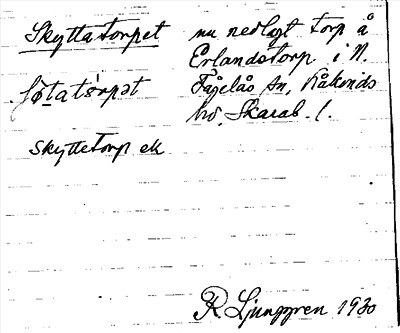 Skyttatorpet nu nedlagt torp å
Erlandstorp i N.
Fågelås sn, Kåkinds
hd. Skarab. l.
Skyttetorp ek
R Ljunggren 1930